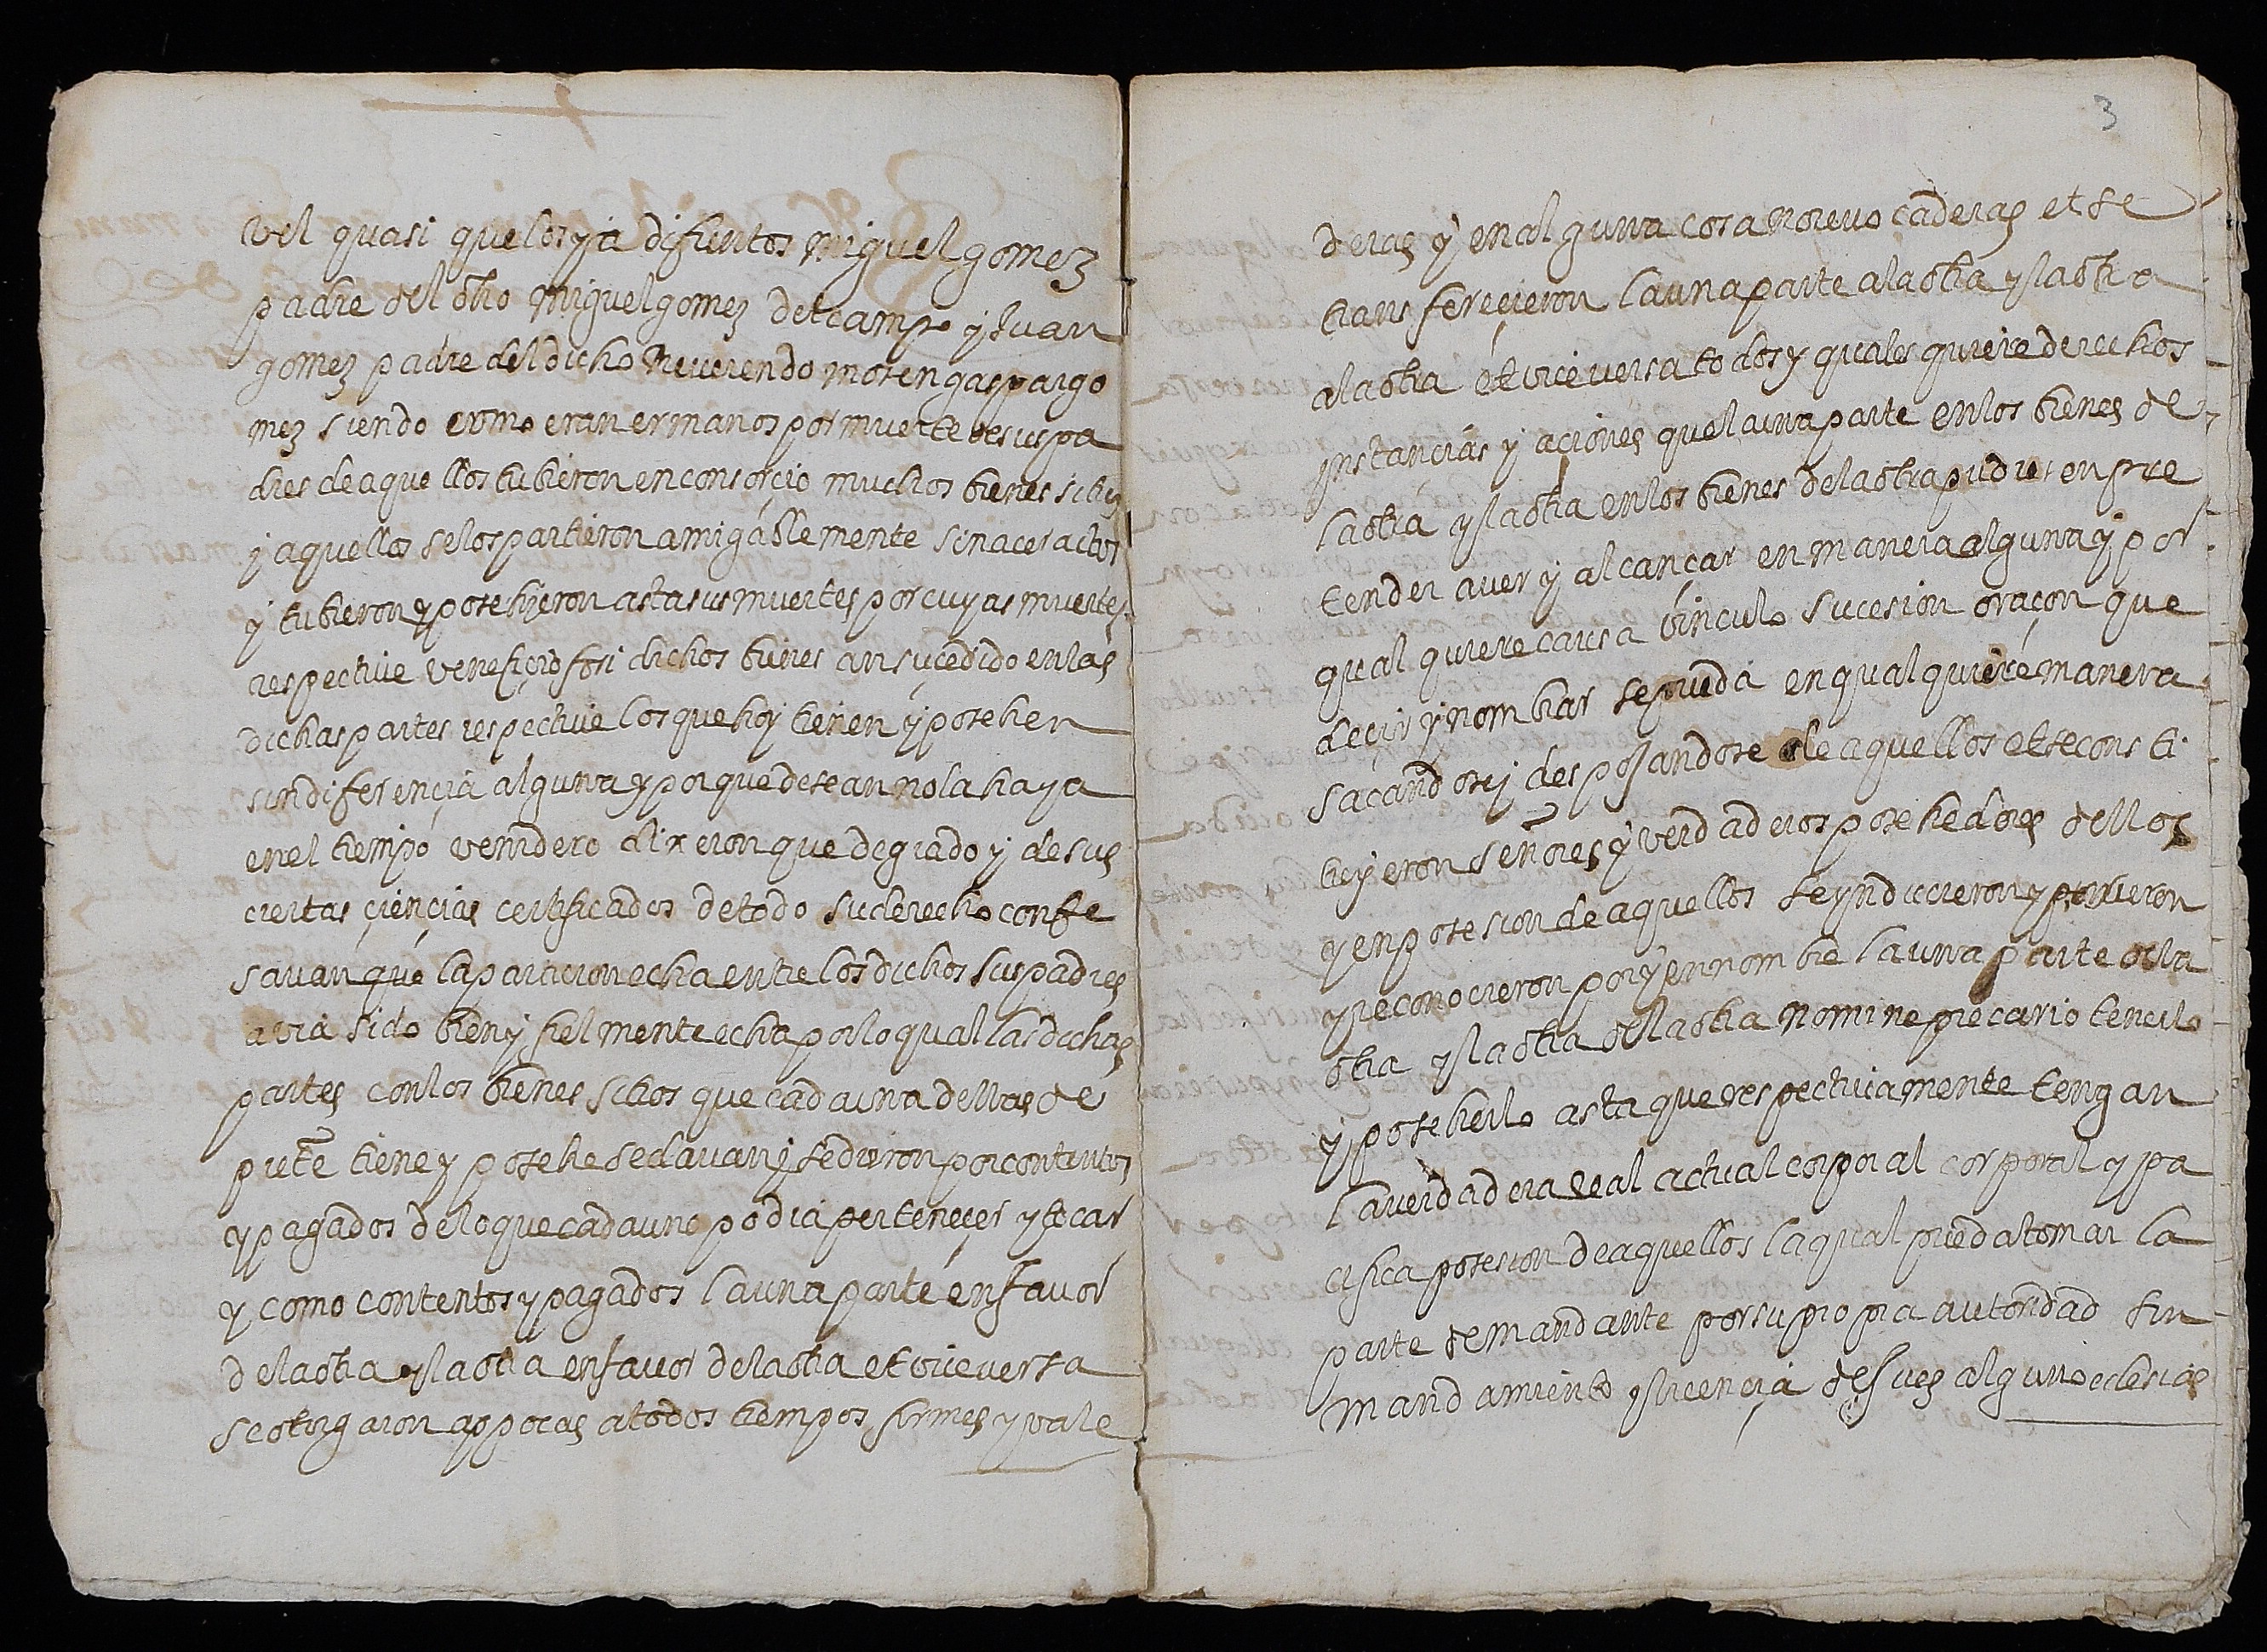 vel quasi que los ya difuntos miguel gomez
padre del dho miguel gomez del campo y Juan
gomez padre del dicho Reverendo mosen gaspar go
mez siendo como eran ermanos por muerte de sus pa
dres de aquellos tubieron en consorcio muchos bienes sitios
y aquellos se los partieron amigablemente sin acer actos
y tubieron y posehieron asta sus muertes por cuyas muertes
respective veneficio fori dichos bienes an sucedido en las
dichas partes respective los que hoy tienen y posehen
sin diferencia alguna y porque desean no la haya
en el tiempo venidero dixeron que de grado y de sus
ciertas çiençias certificados de todo su derecho confe
savan que la particion echa entre los dichos sus padres
avia sido bien y fielmente echa por lo qual las dichas
partes con los bienes sitios que cada una dellas de
prête tiene y posehe se davan y se dieron por contentos
y pagados de lo que cada uno podia perteneçer y tocar
y como contentos y pagados la una parte en favor
de la otra y la otra en favor de la otra et vice versa
se otorgaron apocas a todos tiempos firmes y vale
3
deras y en alguna cosa no revocaderas et se
transfereçieron la una parte a la otra y la otra
a la otra et vice versa todos y quales quiere derechos
instancias y aciones que la una parte en los bienes de
la otra y la otra en los bienes de la otra pudies en pre
tender aver y alcançar en manera alguna y por
qual quiere causa vinculo sucesion o raçon que
deçir y nombrar se pueda en qual quiere manera
sacandose y desposandose de aquellos et se consti
tuyeron señores y verdaderos posehedores dellos
y en posesion de aquellos se ynducieron y pusieron
y reconocieron por y en nombre la una parte de la
otra y la otra de la otra nomine precario tenerlo
y poseherlo asta que respectivamente tengan
la verdadera real actual corporal corporal y pa
cifica posesion de aquellos la qual pueda tomar la
parte demandante por su propia autoridad sin
mandamiento y licençia de Jues alguno eclesias